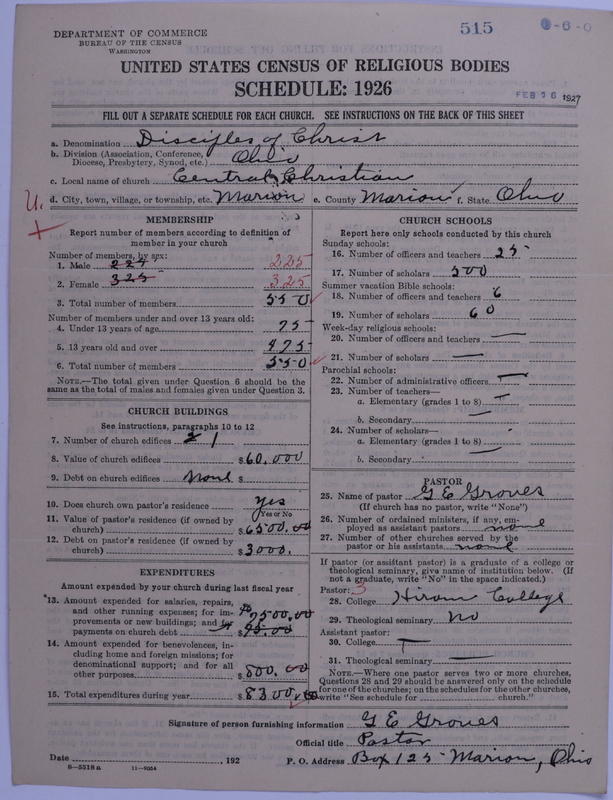 515
8-6-0
DEPARTMENT OF COMMERCE
BUREAU OF THE CENSUS
WASHINGTON
UNITED STATES CENSUS OF RELIGIOUS BODIES
SCHEDULE: 1926
FEB 26 1927
FILL OUT A SEPARATE SCHEDULE FOR EACH CHURCH. SEE INSTRUCTIONS ON THE BACK OF THIS SHEET
a. Denomination Disciples of Christ
b. Division (Association, Conference, Diocese, Presbytery, Synod, etc.) Ohio
c. Local name of church Central Christian
U. d. City, town, village, or township, etc. Marion e. County Marion f. State Ohio
MEMBERSHIP
Report number of members according to definition of
member in your church
Number of members, by sex:
1. Male 225
2. Female 325 325
3. Total number of members 550
Number of members under and over 13 years old:
4. Under 13 years of age 75
5. 13 years old and over 475
6. Total number of members 550
NOTE.—The total given under Question 6 should be the
same as the total of males and females given under Question 3.
CHURCH BUILDINGS
See instructions, paragraphs 10 to 12
7. Number of church edifices 1
8. Value of church edifices $60,000
9. Debt on church edifices none $
10. Does church own pastor's residence yes
(Yes or No)
11. Value of pastor's residence (if owned by
church) $6500.00
12. Debt on pastor's residence (if owned by
church) $3000.
EXPENDITURES
Amount expended by your church during last fiscal year
13. Amount expended for salaries, repairs,
and other running expenses; for im-
provements or new buildings; and for
payments on church debt $7500.00
14. Amount expended for benevolences, in-
cluding home and foreign missions; for
denominational support; and for all
other purposes $800.00
15. Total expenditures during year $8300.00
CHURCH SCHOOLS
Report here only schools conducted by this church
Sunday schools:
16. Number of officers and teachers 25
17. Number of scholars 500
Summer vacation Bible schools:
18. Number of officers and teachers 6
19. Number of scholars 60
Week-day religious schools:
20. Number of officers and teachers —
21. Number of scholars —
Parochial schools:
22. Number of administrative officers —
23. Number of teachers—
a. Elementary (grades 1 to 8) —
b. Secondary —
24. Number of scholars—
a. Elementary (grades 1 to 8) —
b. Secondary —
PASTOR
25. Name of pastor G E Groves
(If church has no pastor, write "None")
26. Number of ordained ministers, if any, em-
ployed as assistant pastors none
27. Number of other churches served by the
pastor or his assistants none
If pastor (or assistant pastor) is a graduate of a college or
theological seminary, give name of institution below. (If
not a graduate, write "No" in the space indicated.)
Pastor: 3
28. College Hiram College
29. Theological seminary No
Assistant pastor:
30. College —
31. Theological seminary —
NOTE.—Where one pastor serves two or more churches,
Questions 28 and 29 should be answered only on the schedule
for one of the churches; on the schedules for the other churches,
write "See schedule for church."
Signature of person furnishing information G E Groves
Official title Pastor
Date , 192 P. O. Address Box 125 Marion, Ohio
8—5518 a 11—9554